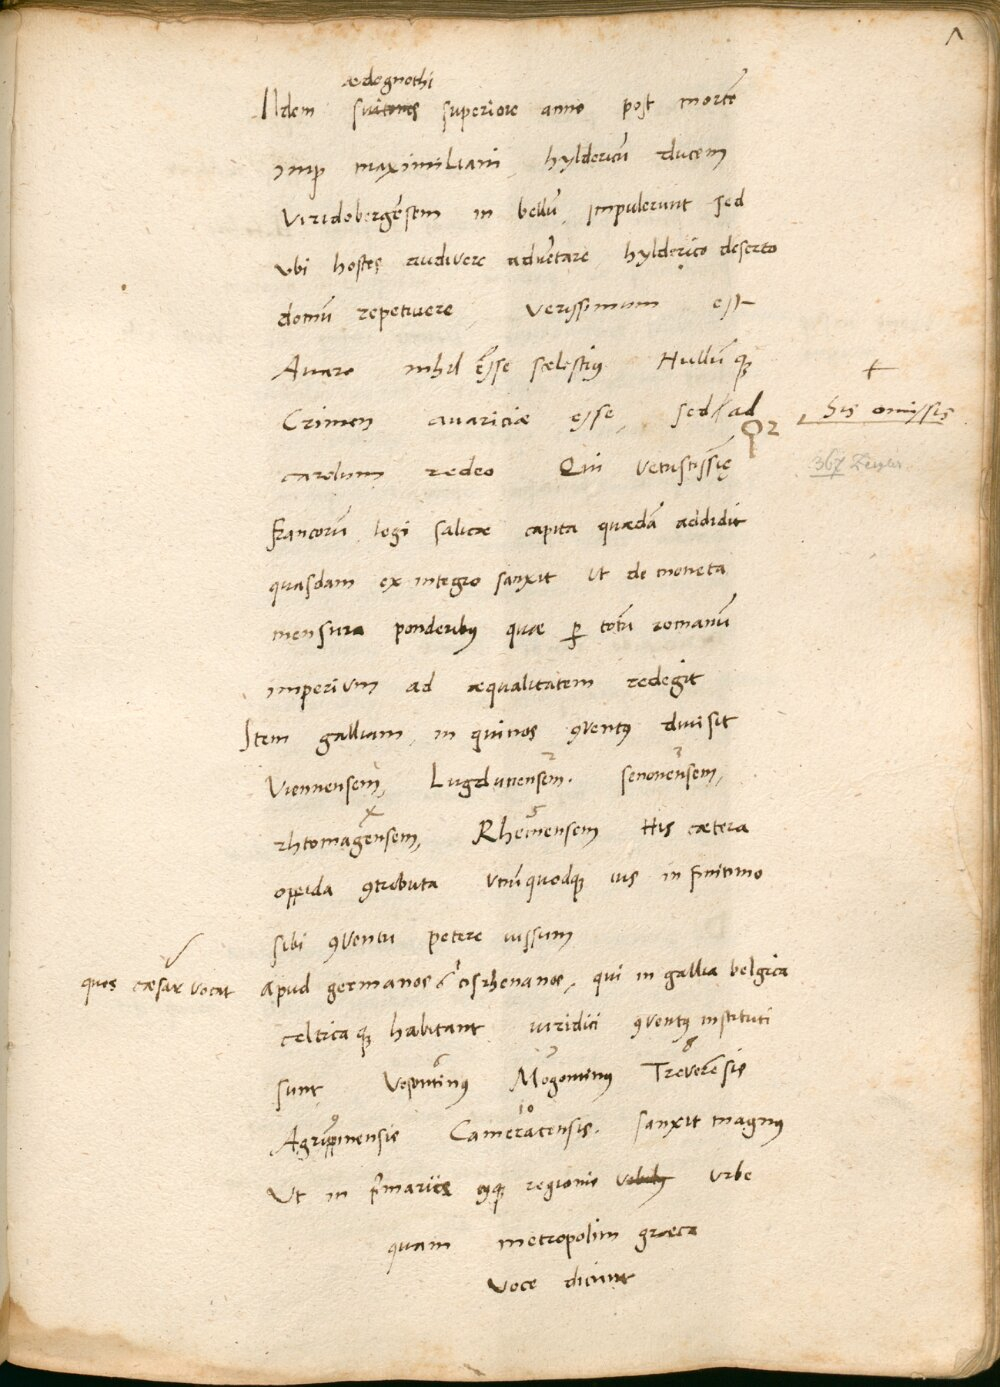 ædognothi
IIdem suitones superiore anno post mortē
imp maximiliani, hyldericū ducem
Viridobergēsem in bellū impulerunt sed
vbi hostes audivere adventare hylderico deserto
domū repetivere verissimum est
Avaro nihil esse scelestius Nullūque
Crimen avaritiæ esse, sed ad
+
his omissis
carolum redeo Qui vetustissimę
367
francorū legi salicæ capita quædā addidit
quasdam ex integro sanxit Vt de moneta
mensura ponderibus quæ per totū romanū
imperium ad æqualitatem redegit
Item galliam, in quinos conventus divisit
Viennensem, Lugdunensem. senonensem,
rhtomagensem, Rhemensem His cætera
oppida contributa Vnūquodque ius in finitimo
sibi conventu petere iussum
quos cæsar vocat
Apud germanos cisrhenanos, qui in gallia belgica
celticaque habitant iuridici conventus instituti
sunt Vesontinus Mogontinus Treverēsis
Agrippinensis Cameracensis. sanxit magnus
Vt in primariis cuiusque regionis urbe
quam metropolim græca
voce dicunt